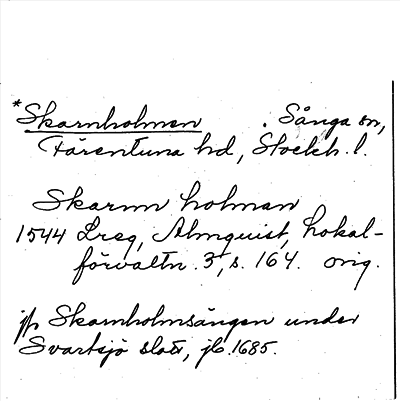 *Skarnholmen . Sånga sn,
Färentuna hd, Stockh. l.
Skarnn holman
1544 Lreg, Almquist, Lokal-
förvaltn. 3, s. 164. orig.
jfr Skarnholmsängen under
Svartsjö slott, jb. 1685.